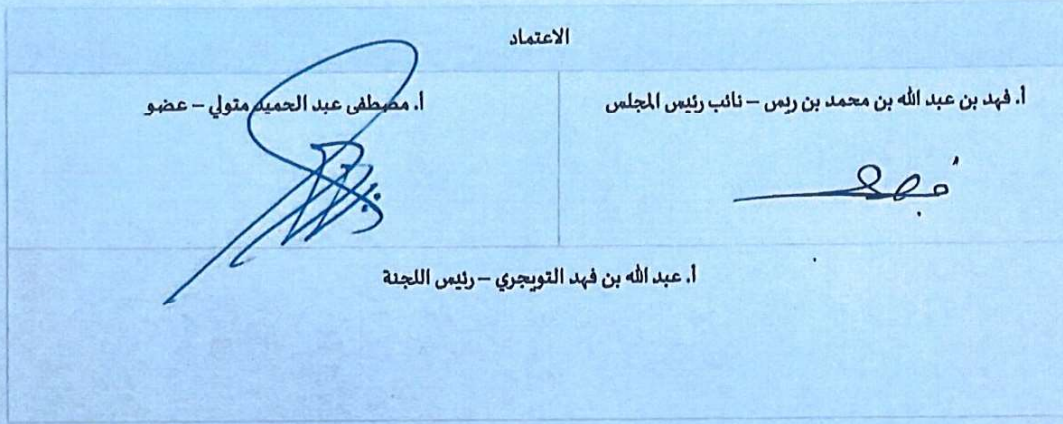 الاعتماد
أ. فهد بن عبد الله بن محمد بن ريس – نائب رئيس المجلس
أ. مصطفى عبد الحميد متولي – عضو
أ. عبد الله بن فهد التويجري – رئيس اللجنة